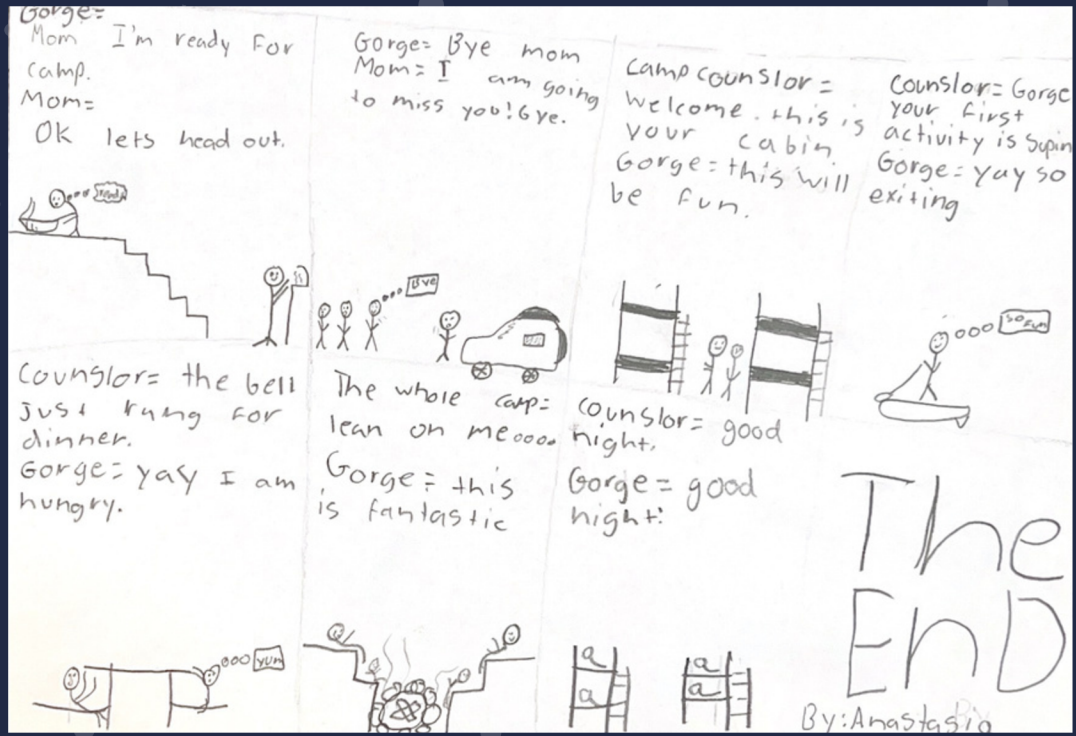 Gorge=
Mom I'm ready For
camp.
Mom=
OK lets head out.
ready
Gorge= Bye mom
Mom= I am going
to miss you! Bye.
Bye
camp counslor =
welcome. this is
your cabin
Gorge= this will
be fun.
counslor= Gorge
your first
activity is Supin
Gorge= yay so
exiting
So Fun
Counslor= the bell
just rung for
dinner.
Gorge= yay I am
hungry.
YUM
The whole camp=
lean on meoooo
Gorge= this
is fantastic
counslor= good
night.
Gorge = good
night!
a
a
a
a
The
EnD
By: Anastasia